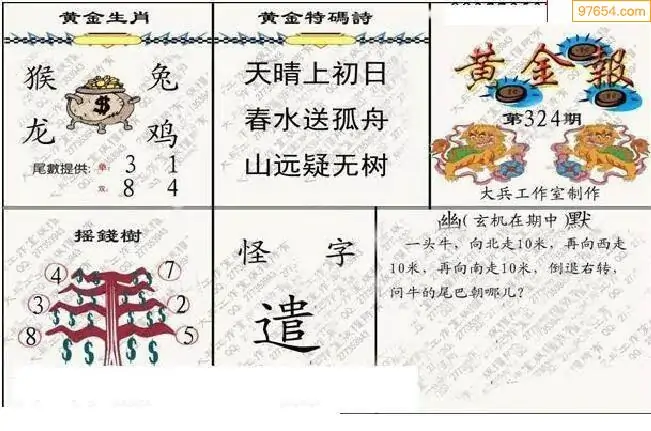 97654.com
黃金生肖
猴 兔
$
龙 鸡
尾數提供: 单: 3 1
双: 8 4
黃金特碼詩
天晴上初日
春水送孤舟
山远疑无树
黄金報
第324期
大兵工作室制作
摇錢樹
4 7
3 2
8 5
怪 字
遣
幽(玄机在期中)默
一头牛，向北走10米，再向西走
10米，再向南走10米，倒退右转，
问牛的尾巴朝哪儿？